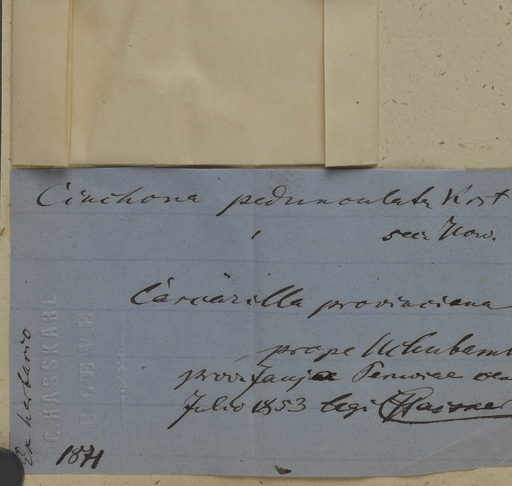 Cinchona pedunculata Karst
sec. How.
Cascarilla provinciana
prope Uchubamb
prov. Jauja Peruviae
Julio 1853 legit Hasskarl
Ex herbario
C. HASSKARL
CLEVE
1871